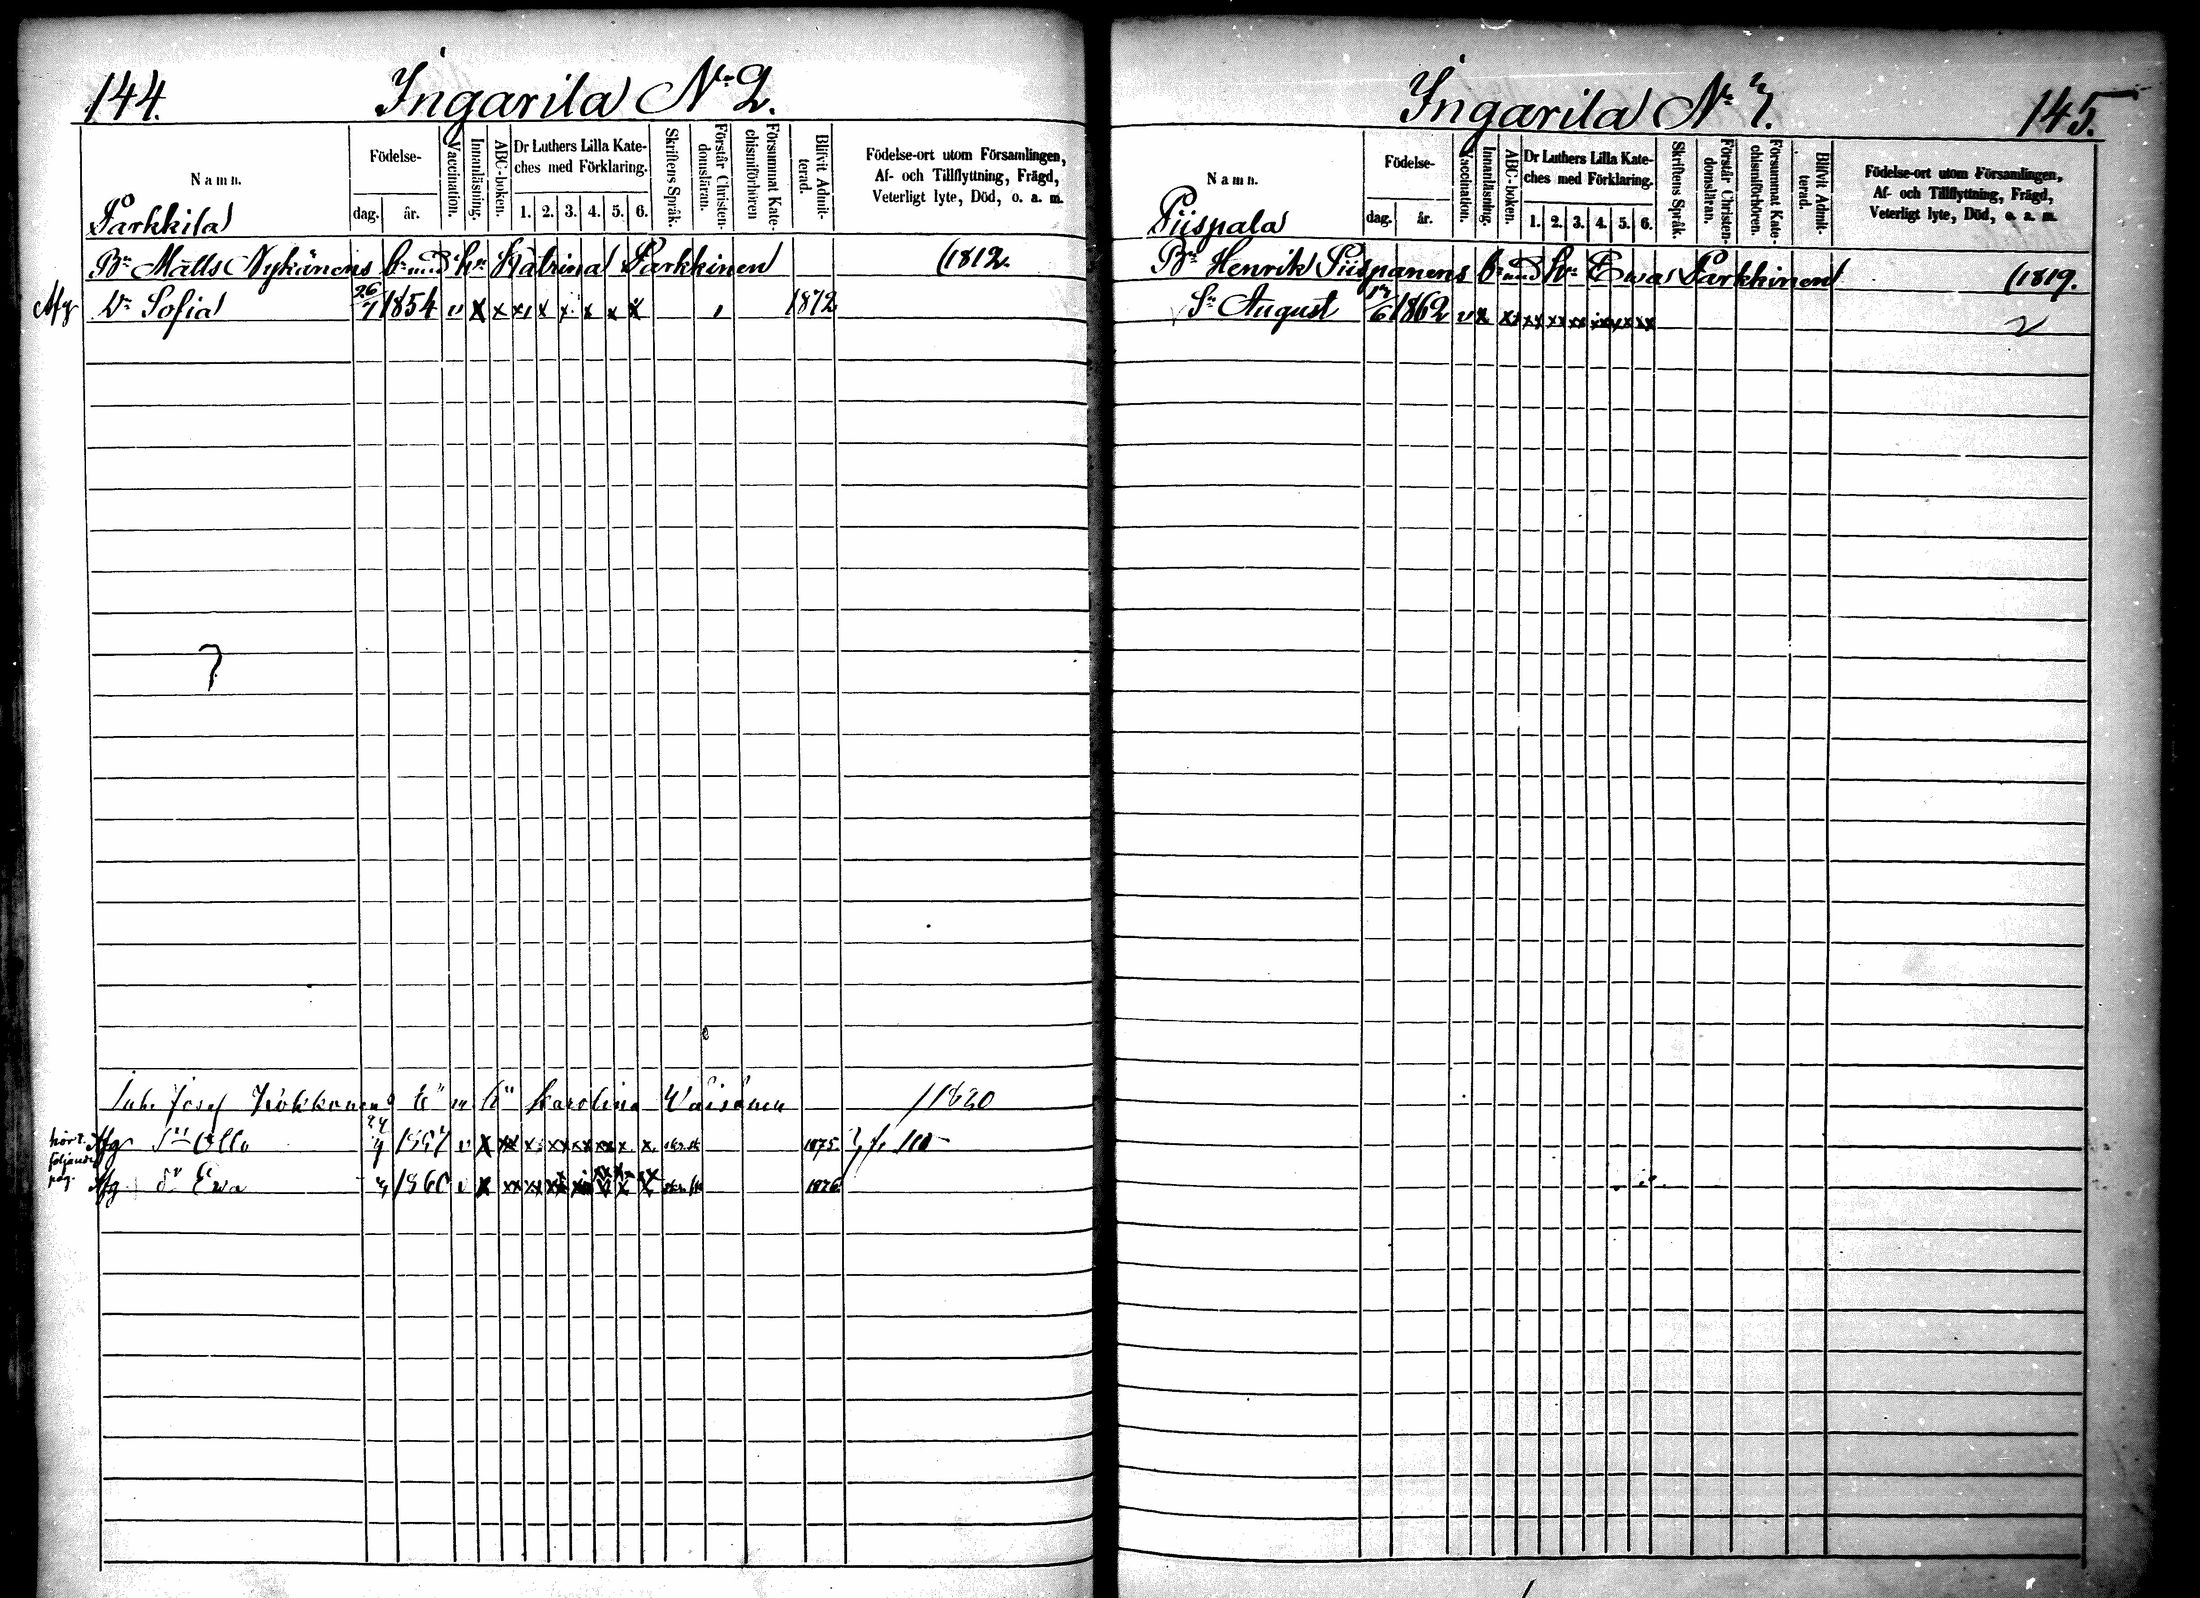 144. Ingarila No 2.
Namn.
Födelse-
dag. år.
Vaccination.
Innanläsning.
ABC-boken.
Dr Luthers Lilla Kate-
ches med Förklaring.
1. 2. 3. 4. 5. 6.
Skriftens Språk.
Förstår Christen-
domsläran.
Försummat Kate-
chismiförhören
Blifvit Admit-
terad.
Födelse-ort utom Församlingen,
Af- och Tillflyttning, Frägd,
Veterligt lyte, Död, o. a. m.
Parkkila
Bn Matts Nykänens b. und hn Katrina Parkkinen (1812.
Afg Dr Sofia 26/7 1854 v x x x x x x x x 1872
?
Inh. Josef Kokkonens Karolina Waisänen / 1820
Afg Sn Olli v x xx x xx xx xx x. x. 1875.
följande
pag. Afg dr Ewa 1860 v x xx xx 1876
Ingarila No 3. 145.
Namn.
Födelse-
dag. år.
Vaccination.
Innanläsning.
ABC-boken.
Dr Luthers Lilla Kate-
ches med Förklaring.
1. 2. 3. 4. 5. 6.
Skriftens Språk.
Förstår Christen-
domsläran.
Försummat Kate-
chismiförhören.
Blifvit Admit-
terad.
Födelse-ort utom Församlingen,
Af- och Tillflyttning, Frägd,
Veterligt lyte, Död, o. a. m.
Piispala
Bn Henrik Piispanens b. und hn Ewa Parkkinen (1819.
Sn August 1862 v x xx xx xx xx xx xx xx